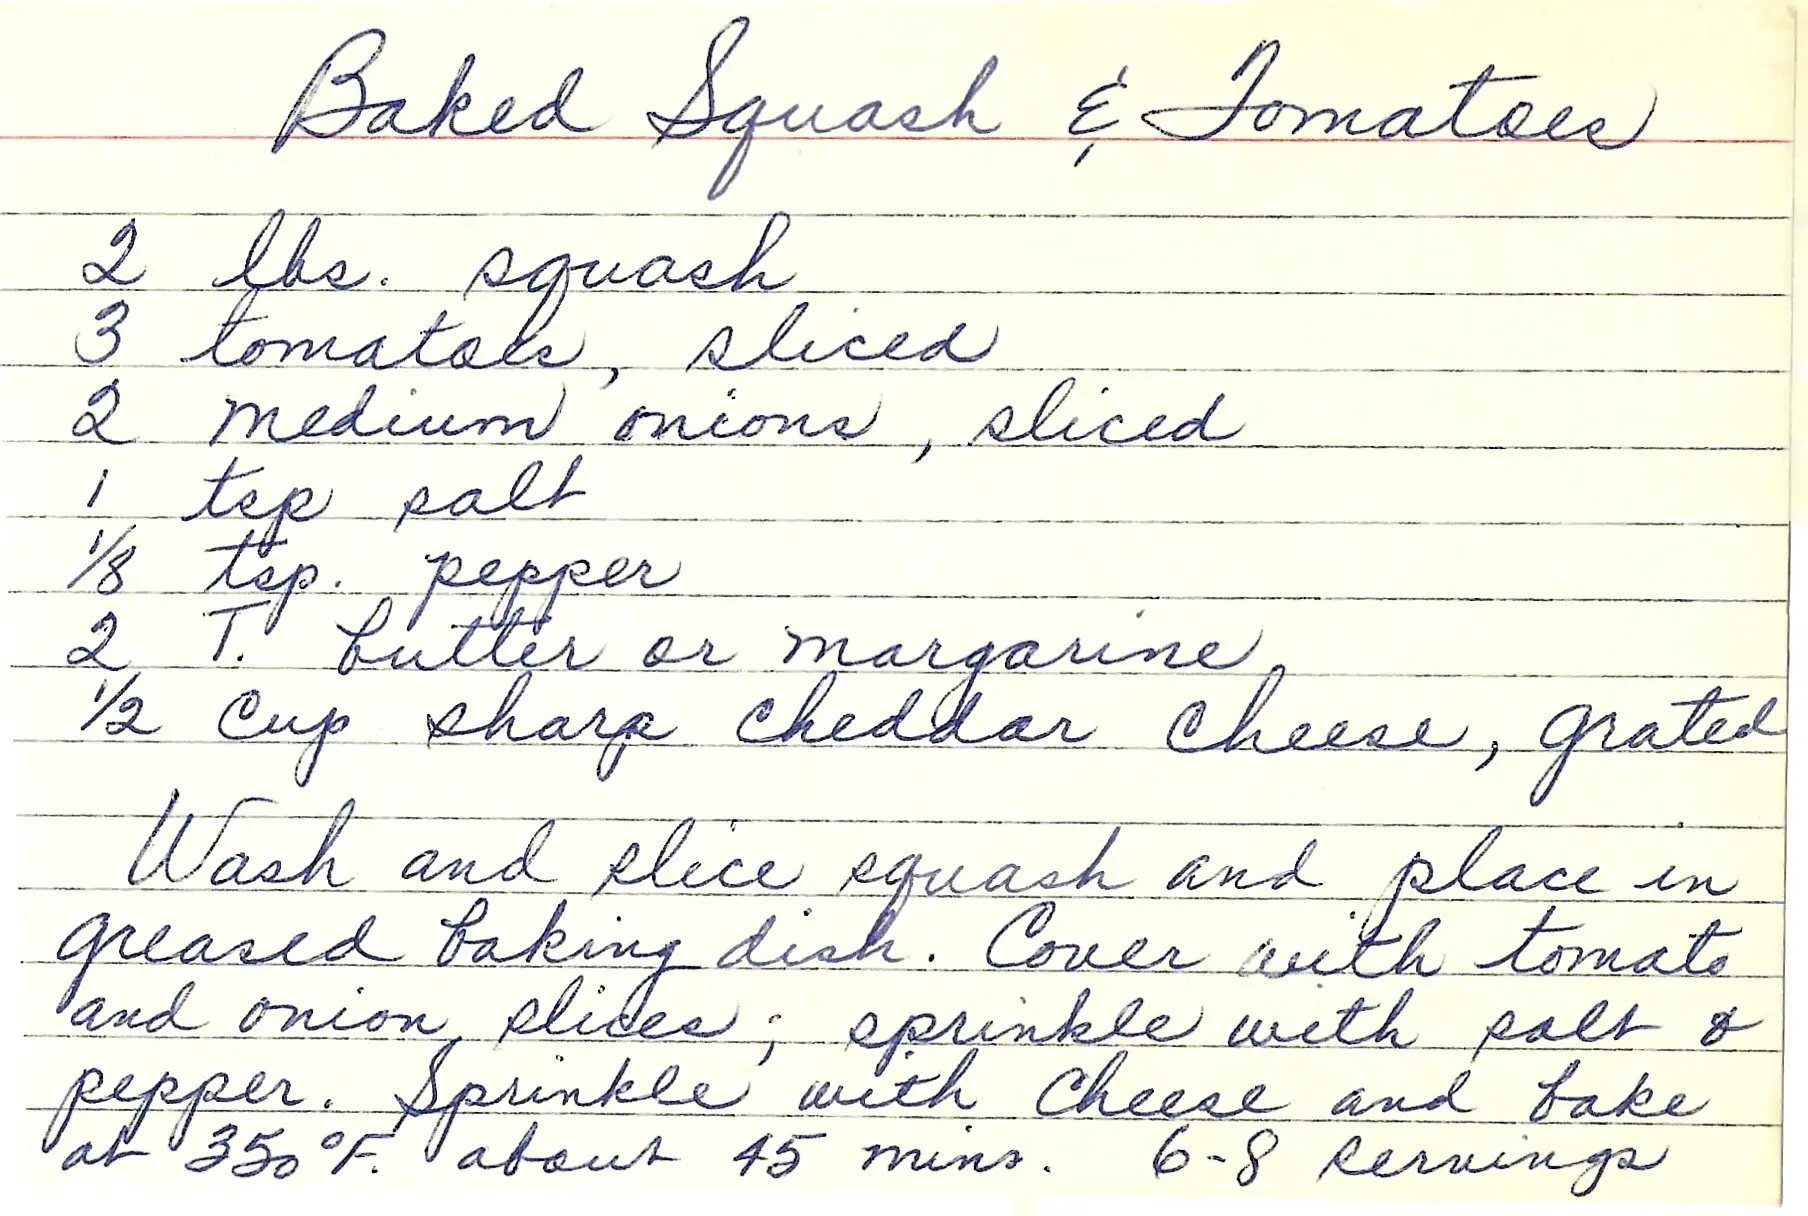 Baked Squash & Tomatoes
2 lbs. squash
3 tomatoes, sliced
2 medium onions, sliced
1 tsp salt
1/8 tsp. pepper
2 T. butter or margarine
1/2 cup sharp cheddar cheese, grated
Wash and slice squash and place in
greased baking dish. Cover with tomato
and onion slices; sprinkle with salt &
pepper. Sprinkle with cheese and bake
at 350°F. about 45 mins. 6-8 servings